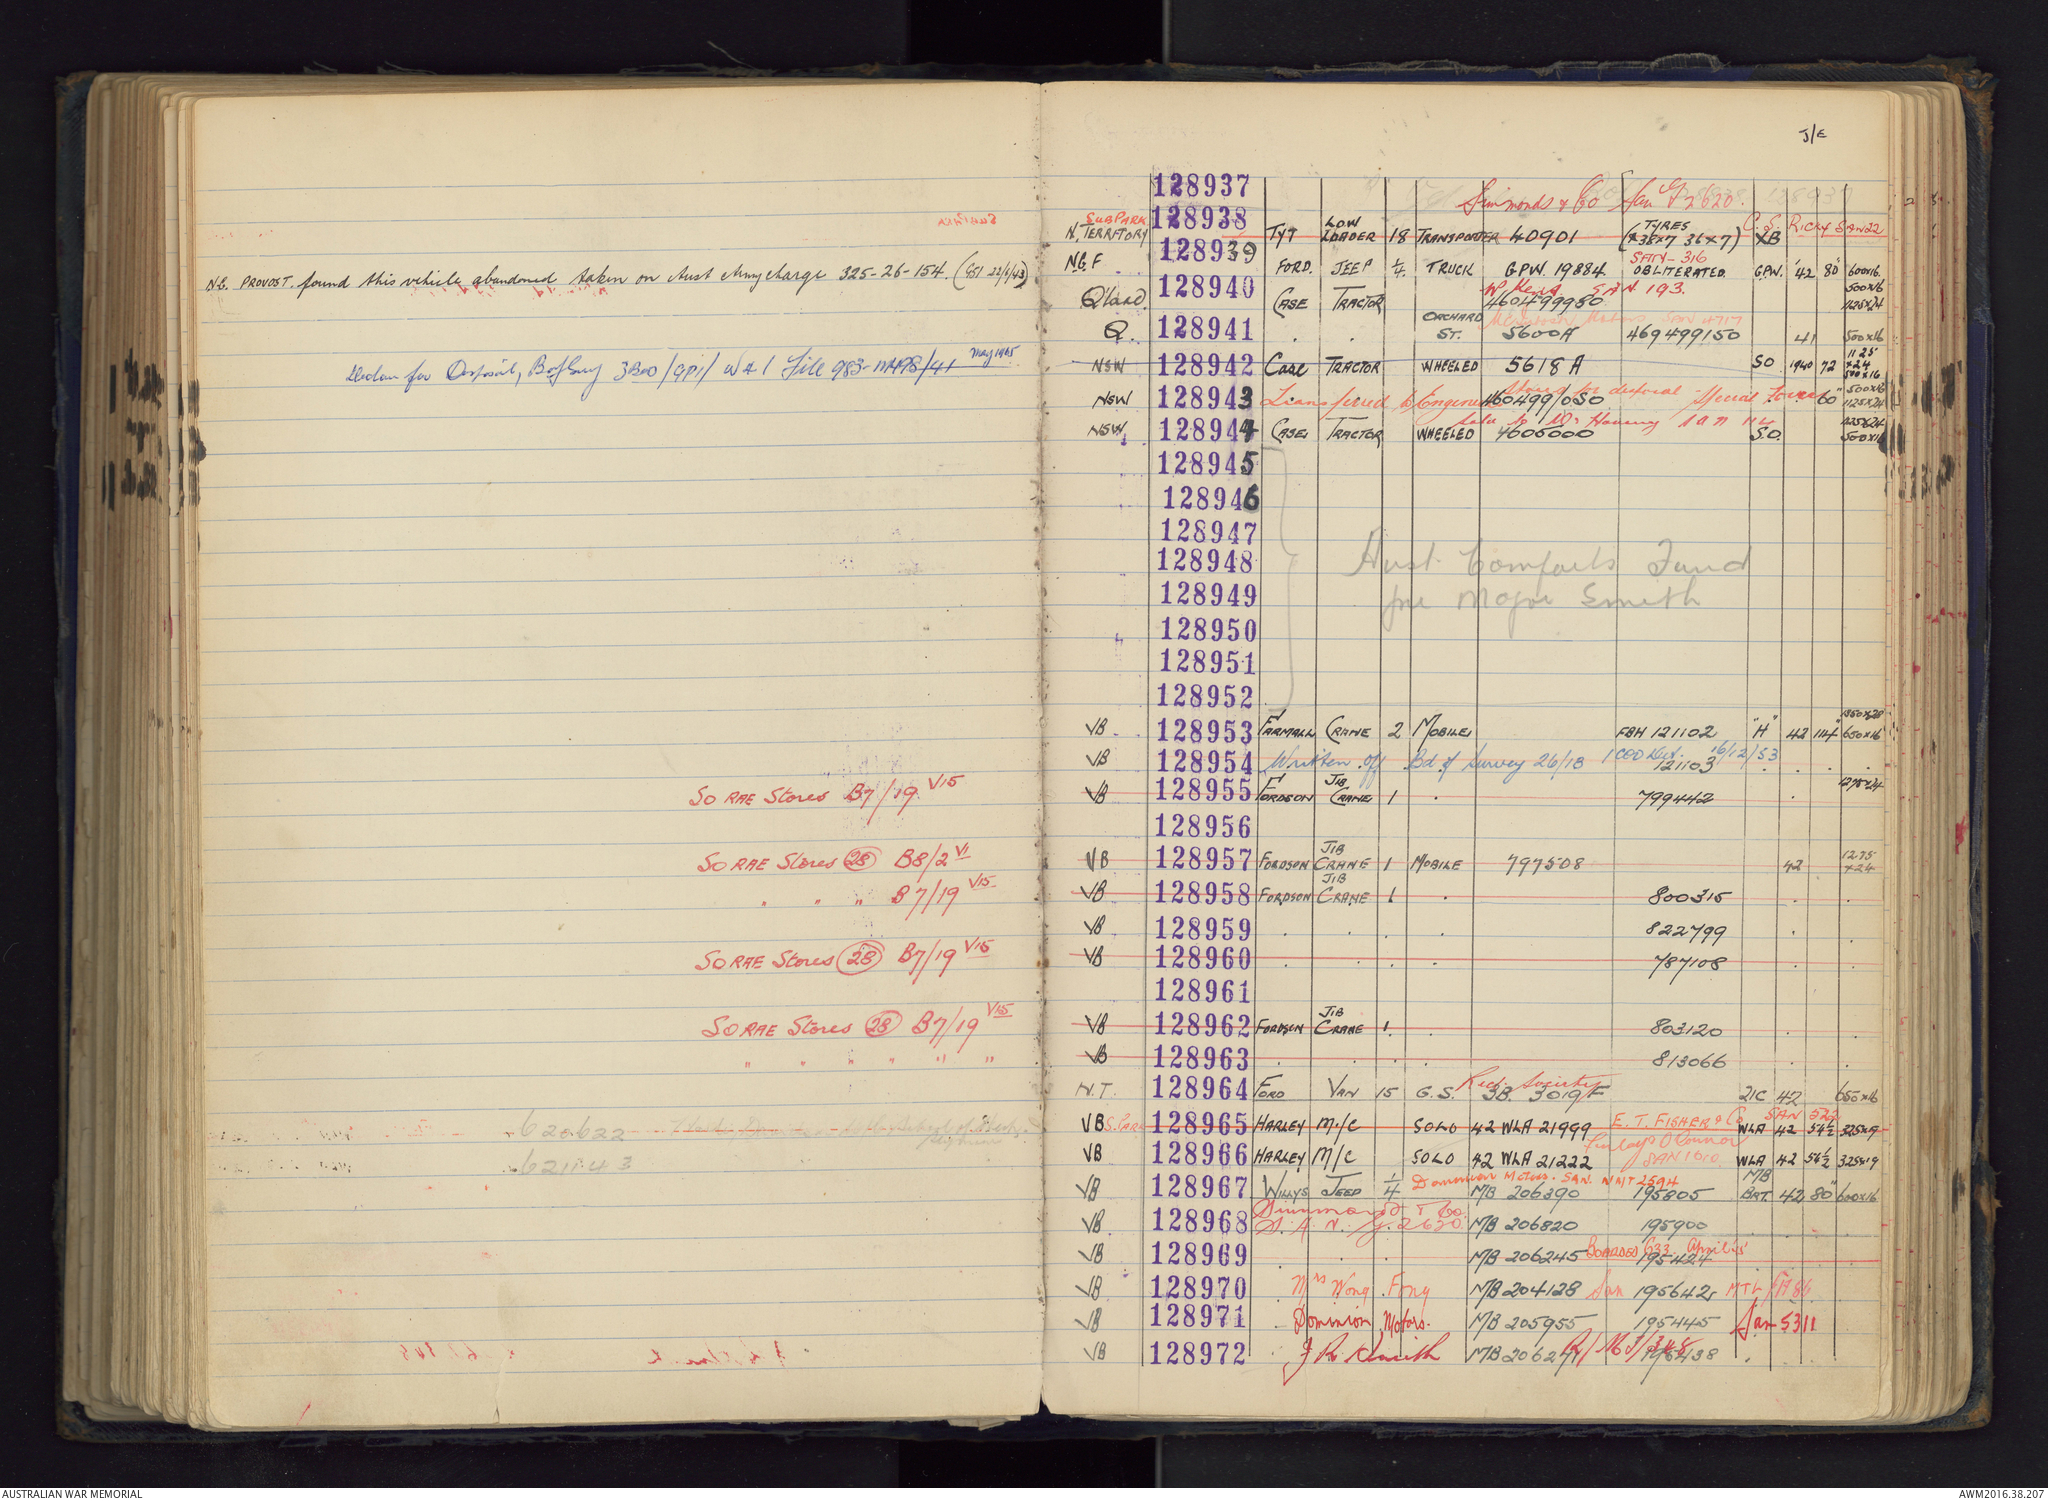 N.G. PROVOST. found this vehicle abandoned taken on Aust Army charge 325-26-154. (951 22/6/43)
3BOO/GP1/ W & I File 983-M498/41 May 1945
SO RAE Stores B7/19 V15
SO RAE Stores 28 B8/2 VI
" " " B7/19 V15
SO RAE Stores 28 B7/19 V15
SO RAE Stores 28 B7/19 V15
" " " " " "
620622
621143
J/E
128937 Simmonds & Co San G 2620.
SUBPARK N. TERRITORY 128938 TYT LOW LOADER 18 TRANSPORTER 40901 TYRES (38x7 36x7) XB C.S. Ricky SAN 22
N.G.F 128939 FORD. JEEP 1/4 TRUCK GPW. 19884 OBLITERATED. SAN-316 G.P.W. '42 80" 600x16.
Q'land. 128940 CASE TRACTOR 460499950 SAN 193. 500x16 1125x24
Q. 128941 . . ORCHARD ST. 5600A 469499150 Motors SAN 4717 41 500x16
NSW 128942 Case TRACTOR WHEELED 5618A SO 1940 72 1125 x24 500x16
NSW 128943 Transferred to Engineer Stores for disposal - Special Force 460499/050 60" 500x16 1125x24
NSW 128944 CASE TRACTOR WHEELED 4605000 Sale to Housing SAN 114 S.O. 1125x24 500x16
128945
128946
128947
128948 Aust. Comforts Fund
128949 per Major Smith
128950
128951
128952
VB 128953 FARMALL CRANE 2 MOBILE FBH 121102 "H" 42 114" 650x16
VB 128954 Written off Bd of Survey 26/18 1 COD 16/12/53 121103 . . .
VB 128955 FORDSON JIB CRANE 1 . 799442 . 1275x24
128956
VB 128957 FORDSON JIB CRANE 1 MOBILE 797508 42 1275 x24
VB 128958 FORDSON JIB CRANE 1 . 800315 . .
VB 128959 . . . . 822799 . .
VB 128960 . . . . 787108 . .
128961
VB 128962 FORDSON JIB CRANE 1. . 803120 . .
VB 128963 . . . . 813066 . .
N.T. 128964 FORD VAN 15 G.S. 3B. 3019F Rec. Society 21C 42 650x16
VB S.PARK 128965 HARLEY M/C SOLO 42 WLA 21999 E. T. FISHER & Co SAN 522 WLA 42 54½ 325x19
VB 128966 HARLEY M/C SOLO 42 WLA 21222 Finlays O'Connor SAN 1610 WLA 42 54½ 325x19
VB 128967 WILLYS JEEP 1/4 Dominion Motors. SAN. MMT 2594 MB 206390 195805 M/B BRT. 42 80" 600x16
VB 128968 & Co. S.A.N. G. 2620. MB 206820 195900
VB 128969 . . . MB 206245 BOARDED G33 April '45 195424
VB 128970 Mrs Wong Fong MB 204128 San 195642
VB 128971 Dominion Motors. MB 205955 195445 San 5311
VB 128972 J R Smith